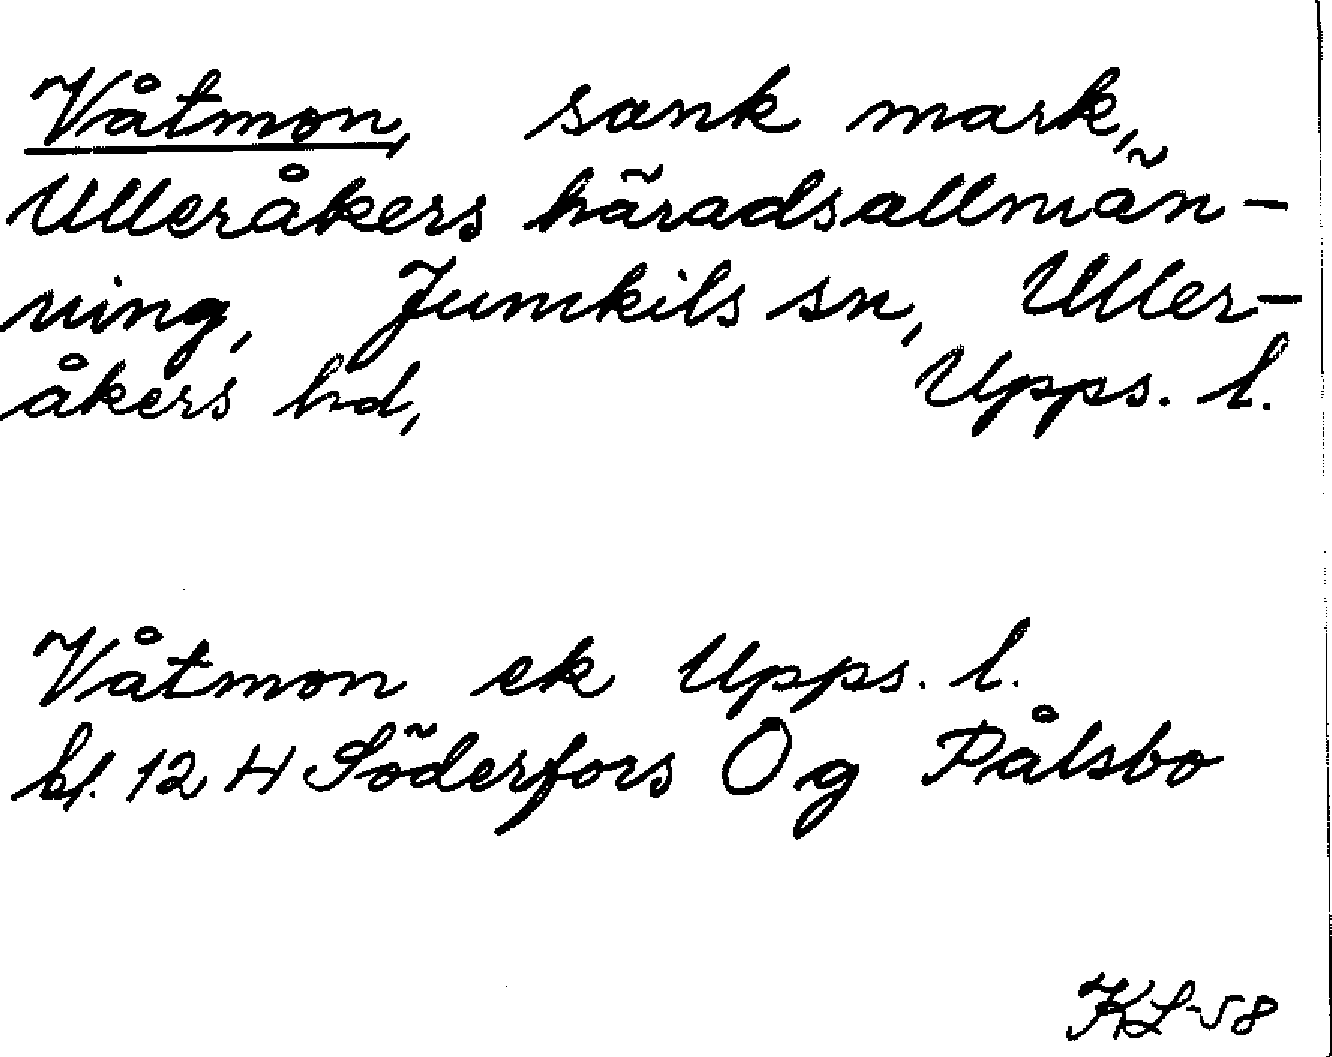 Våtmon, sank mark,
Ulleråkers häradsallmän-
ning, Jumkils sn, Uller-
åkers hd, Upps. l.
Våtmon ek Upps. l.
bl. 12 H Söderfors Ö g Pålsbo
KL-58